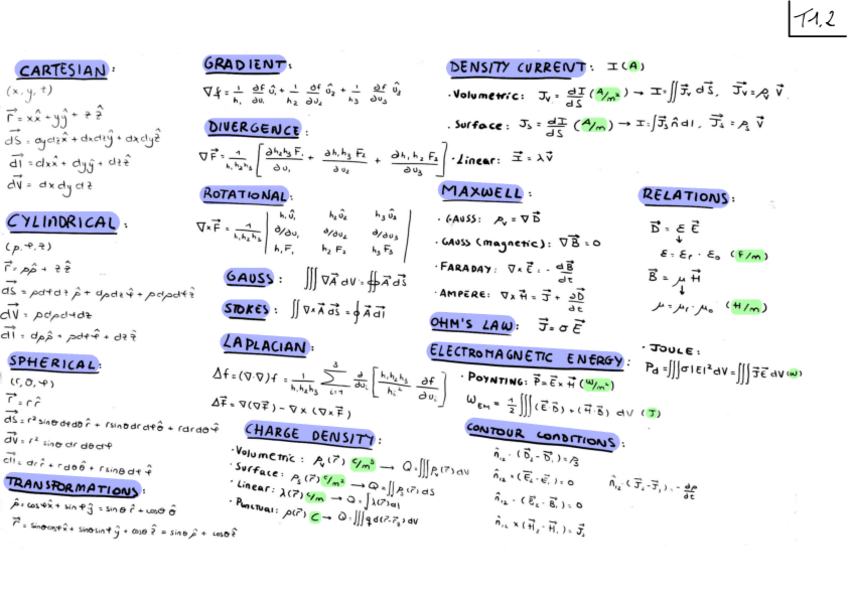 T1.2
CARTESIAN:
(x, y, z)
r⃗ = xx̂ + yŷ + zẑ
dS⃗ = dydzx̂ + dxdzŷ + dxdyẑ
dl⃗ = dxx̂ + dyŷ + dzẑ
dV = dxdydz
CYLINDRICAL:
(ρ, φ, z)
r⃗ = ρρ̂ + zẑ
dS⃗ = ρdφdz ρ̂ + dρdzφ̂ + ρdρdφẑ
dV = ρdρdφdz
dl⃗ = dρρ̂ + ρdφφ̂ + dzẑ
SPHERICAL:
(r, θ, φ)
r⃗ = rr̂
dS⃗ = r² sinθdθdφr̂ + rsinθdrdφθ̂ + rdrdθφ̂
dV = r² sinθdrdθdφ
dl⃗ = drr̂ + rdθθ̂ + rsinθdφφ̂
TRANSFORMATIONS:
ρ̂ = cosφx̂ + sinφŷ = sinθr̂ + cosθθ̂
r̂ = sinθcosφx̂ + sinθsinφŷ + cosθẑ = sinθρ̂ + cosθẑ
GRADIENT:
∇f = 1/h₁ ∂f/∂u₁ û₁ + 1/h₂ ∂f/∂u₂ û₂ + 1/h₃ ∂f/∂u₃ û₃
DIVERGENCE:
∇F⃗ = 1/h₁h₂h₃ [∂h₂h₃F₁/∂u₁ + ∂h₁h₃F₂/∂u₂ + ∂h₁h₂F₃/∂u₃]
ROTATIONAL:
h₁û₁ h₂û₂ h₃û₃
∇×F⃗ = 1/h₁h₂h₃ | ∂/∂u₁ ∂/∂u₂ ∂/∂u₃ |
h₁F₁ h₂F₂ h₃F₃
GAUSS: ∭∇A⃗ dV = ∯A⃗ dS⃗
STOKES: ∬∇×A⃗ dS⃗ = ∮A⃗ dl⃗
LAPLACIAN:
Δf = (∇·∇)f = 1/h₁h₂h₃ Σ³ᵢ₌₁ ∂/∂uᵢ [h₁h₂h₃/hᵢ² ∂f/∂uᵢ]
ΔF⃗ = ∇(∇F⃗) - ∇×(∇×F⃗)
CHARGE DENSITY:
· Volumetric: ρᵥ(r⃗) C/m³ → Q = ∭ρᵥ(r⃗)dV
· Surface: ρₛ(r⃗) C/m² → Q = ∬ρₛ(r⃗)dS
· Linear: λ(r⃗) C/m → Q = ∫λ(r⃗)dl
· Punctual: ρ(r⃗) C → Q = ∭qδ(r⃗-r⃗₀)dV
DENSITY CURRENT: I (A)
· Volumetric: Jᵥ = dI/dS (A/m²) → I = ∬J⃗ᵥ dS⃗, J⃗ᵥ = ρᵥ V⃗
· Surface: Jₛ = dI/dS (A/m) → I = ∫J⃗ₛ n̂ dl, J⃗ₛ = ρₛ V⃗
· Linear: I⃗ = λV⃗
MAXWELL:
· GAUSS: ρᵥ = ∇D⃗
· GAUSS (magnetic): ∇B⃗ = 0
· FARADAY: ∇×E⃗ = - dB⃗/dt
· AMPERE: ∇×H⃗ = J⃗ + ∂D⃗/∂t
OHM'S LAW: J⃗ = σE⃗
RELATIONS:
D⃗ = ε E⃗
↓
ε = εr · ε₀ (F/m)
B⃗ = μ H⃗
↓
μ = μr · μ₀ (H/m)
ELECTROMAGNETIC ENERGY:
· POYNTING: P⃗ = E⃗ × H⃗ (W/m²)
W_EM = 1/2 ∭(E⃗·D⃗) + (H⃗·B⃗) dV (J)
· JOULE:
Pd = ∭σ|E|² dV = ∭J⃗E⃗ dV (W)
CONTOUR CONDITIONS:
n̂₁₂ · (D⃗₂ - D⃗₁) = ρₛ
n̂₁₂ × (E⃗₂ - E⃗₁) = 0
n̂₁₂ · (B⃗₂ - B⃗₁) = 0
n̂₁₂ × (H⃗₂ - H⃗₁) = J⃗ₛ
n̂₁₂ · (J⃗₂ - J⃗₁) = - ∂ρ/∂t